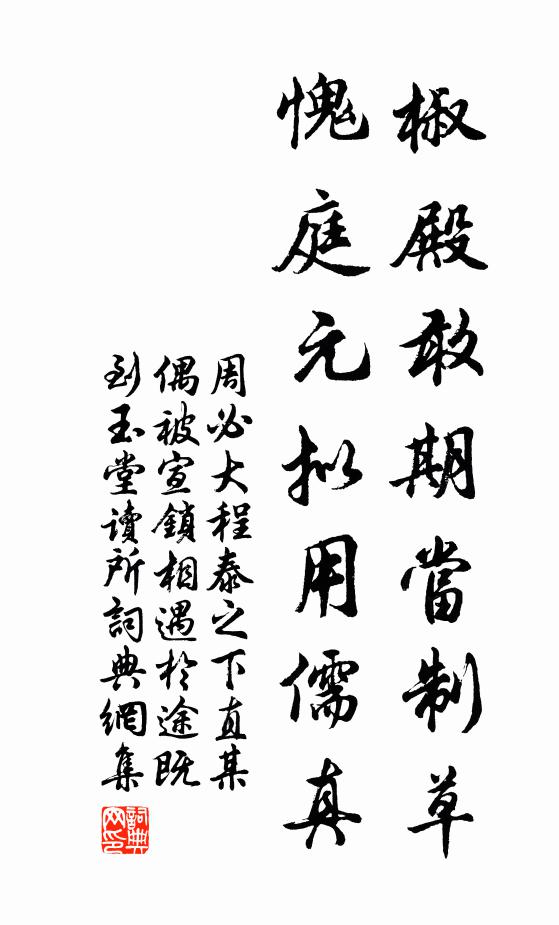 椒殿敢期當制草
愧庭元拟用儒真
周必大程泰之下直某
偶被宣鎖相遇於途既
到玉堂讀所詞典網集
詞典网印